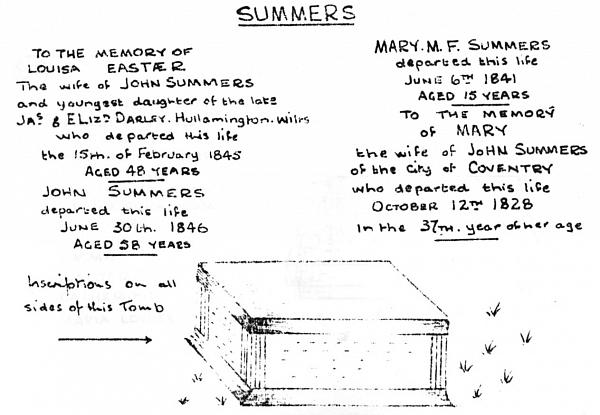 SUMMERS
TO THE MEMORY OF
LOUISA EASTÆR
The wife of JOHN SUMMERS
and youngest daughter of the late
JAS & ELIZD DARLEY. Hullamington. Wilts
who departed this life
the 15th. of February 1845
AGED 48 YEARS
JOHN SUMMERS
departed this life
JUNE 30th. 1846
AGED 58 YEARS
Inscriptions on all
sides of this Tomb
MARY. M. F. SUMMERS
departed this life
JUNE 6TH 1841
AGED 15 YEARS
TO THE MEMORY
of MARY
the wife of JOHN SUMMERS
of the City of COVENTRY
who departed this life
OCTOBER 12TH 1828
In the 37TH. year of her age